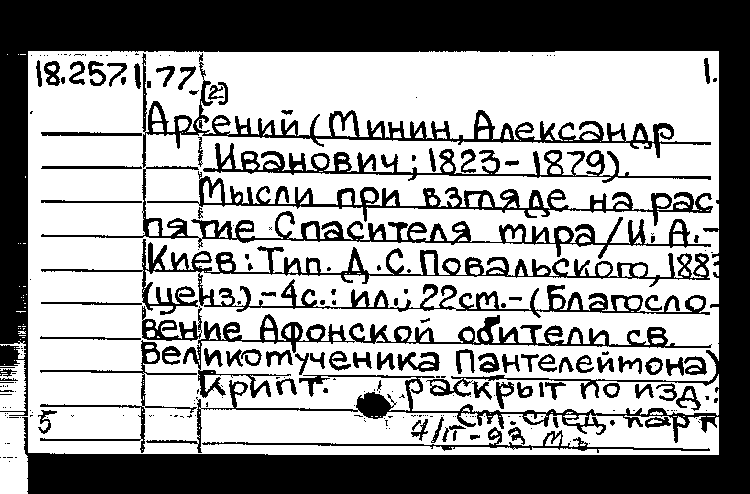 18.257.1.77. 1.
[2]
Арсений (Минин, Александр
Иванович; 1823-1879).
Мысли при взгляде на рас-
пятие Спасителя мира / И. А.-
Киев: Тип. Д.С. Повальского, 1883
(ценз.).-4с.: ил.; 22см.-(Благосло-
вение Афонской обители св.
великомученика Пантелеймона)
Крипт. раскрыт по изд.:
См. след. карт
5 4/II-93